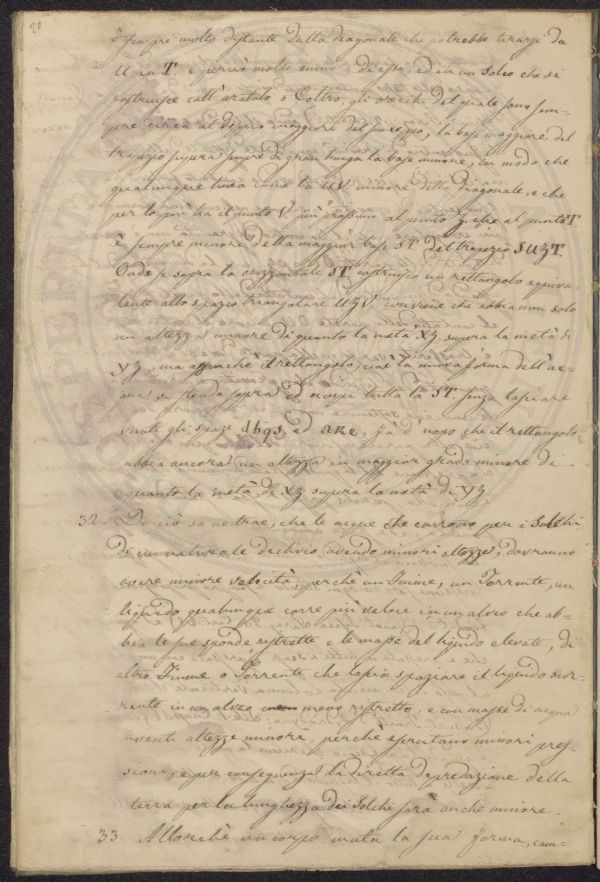 20
è sempre molto distante dalla diagonale che potrebbe tirarsi da
U in T e perciò molto meno di essa, ed in un Solco che si
costruisce coll' aratolo o Coltro, gli orecchi del quale sono sem=
pre circa al doppio maggiori del la base maggiore del
trapezio supera sempre di gran lunga la base minore, in modo che
qualunque linea come la UV minore della Diagonale, e che
per lo più ha il punto V più prossimo al punto Z che al punto T
è sempre minore della maggior base ST del trapezio SUZT.
Onde se sopra la orizzontale ST costruisco un rettangolo equiva=
lente allo spazio triangolare UZV. conviene che abbia non solo
un altezza minore di quanto la metà XZ supera la metà di
YZ, ma affinchè il rettangolo, cioè la nuova forma dell' ac=
qua si stenda sopra ed occupi tutta la ST senza lasciare
vuoti gli spazj ed fa d' uopo che il rettangolo
abbia ancora un altezza in maggior grado minore di
quanto la metà di XZ supera la metà di YZ
32. Da ciò se ne trae, che le acque che corrono per i Solchi
di un naturale declivio avendo minori altezze, dovranno
avere minore velocità, perchè un Fiume, un Torrente, un
liquido qualunque corre più veloce in un alveo che ab=
bia le sue sponde ristrette e le masse del liquido elevate, di
altro Fiume o Torrente, che lascia spaziare il liquido scor=
rente in un alveo meno ristretto, e con masse di acqua
aventi altezze minori, perchè esercitano minori pres=
sioni, e per conseguenza la diretta depredazione della
terra per la lunghezza dei Solchi sarà anche minore.
33. Allorchè un corpo muta la sua forma, cam=